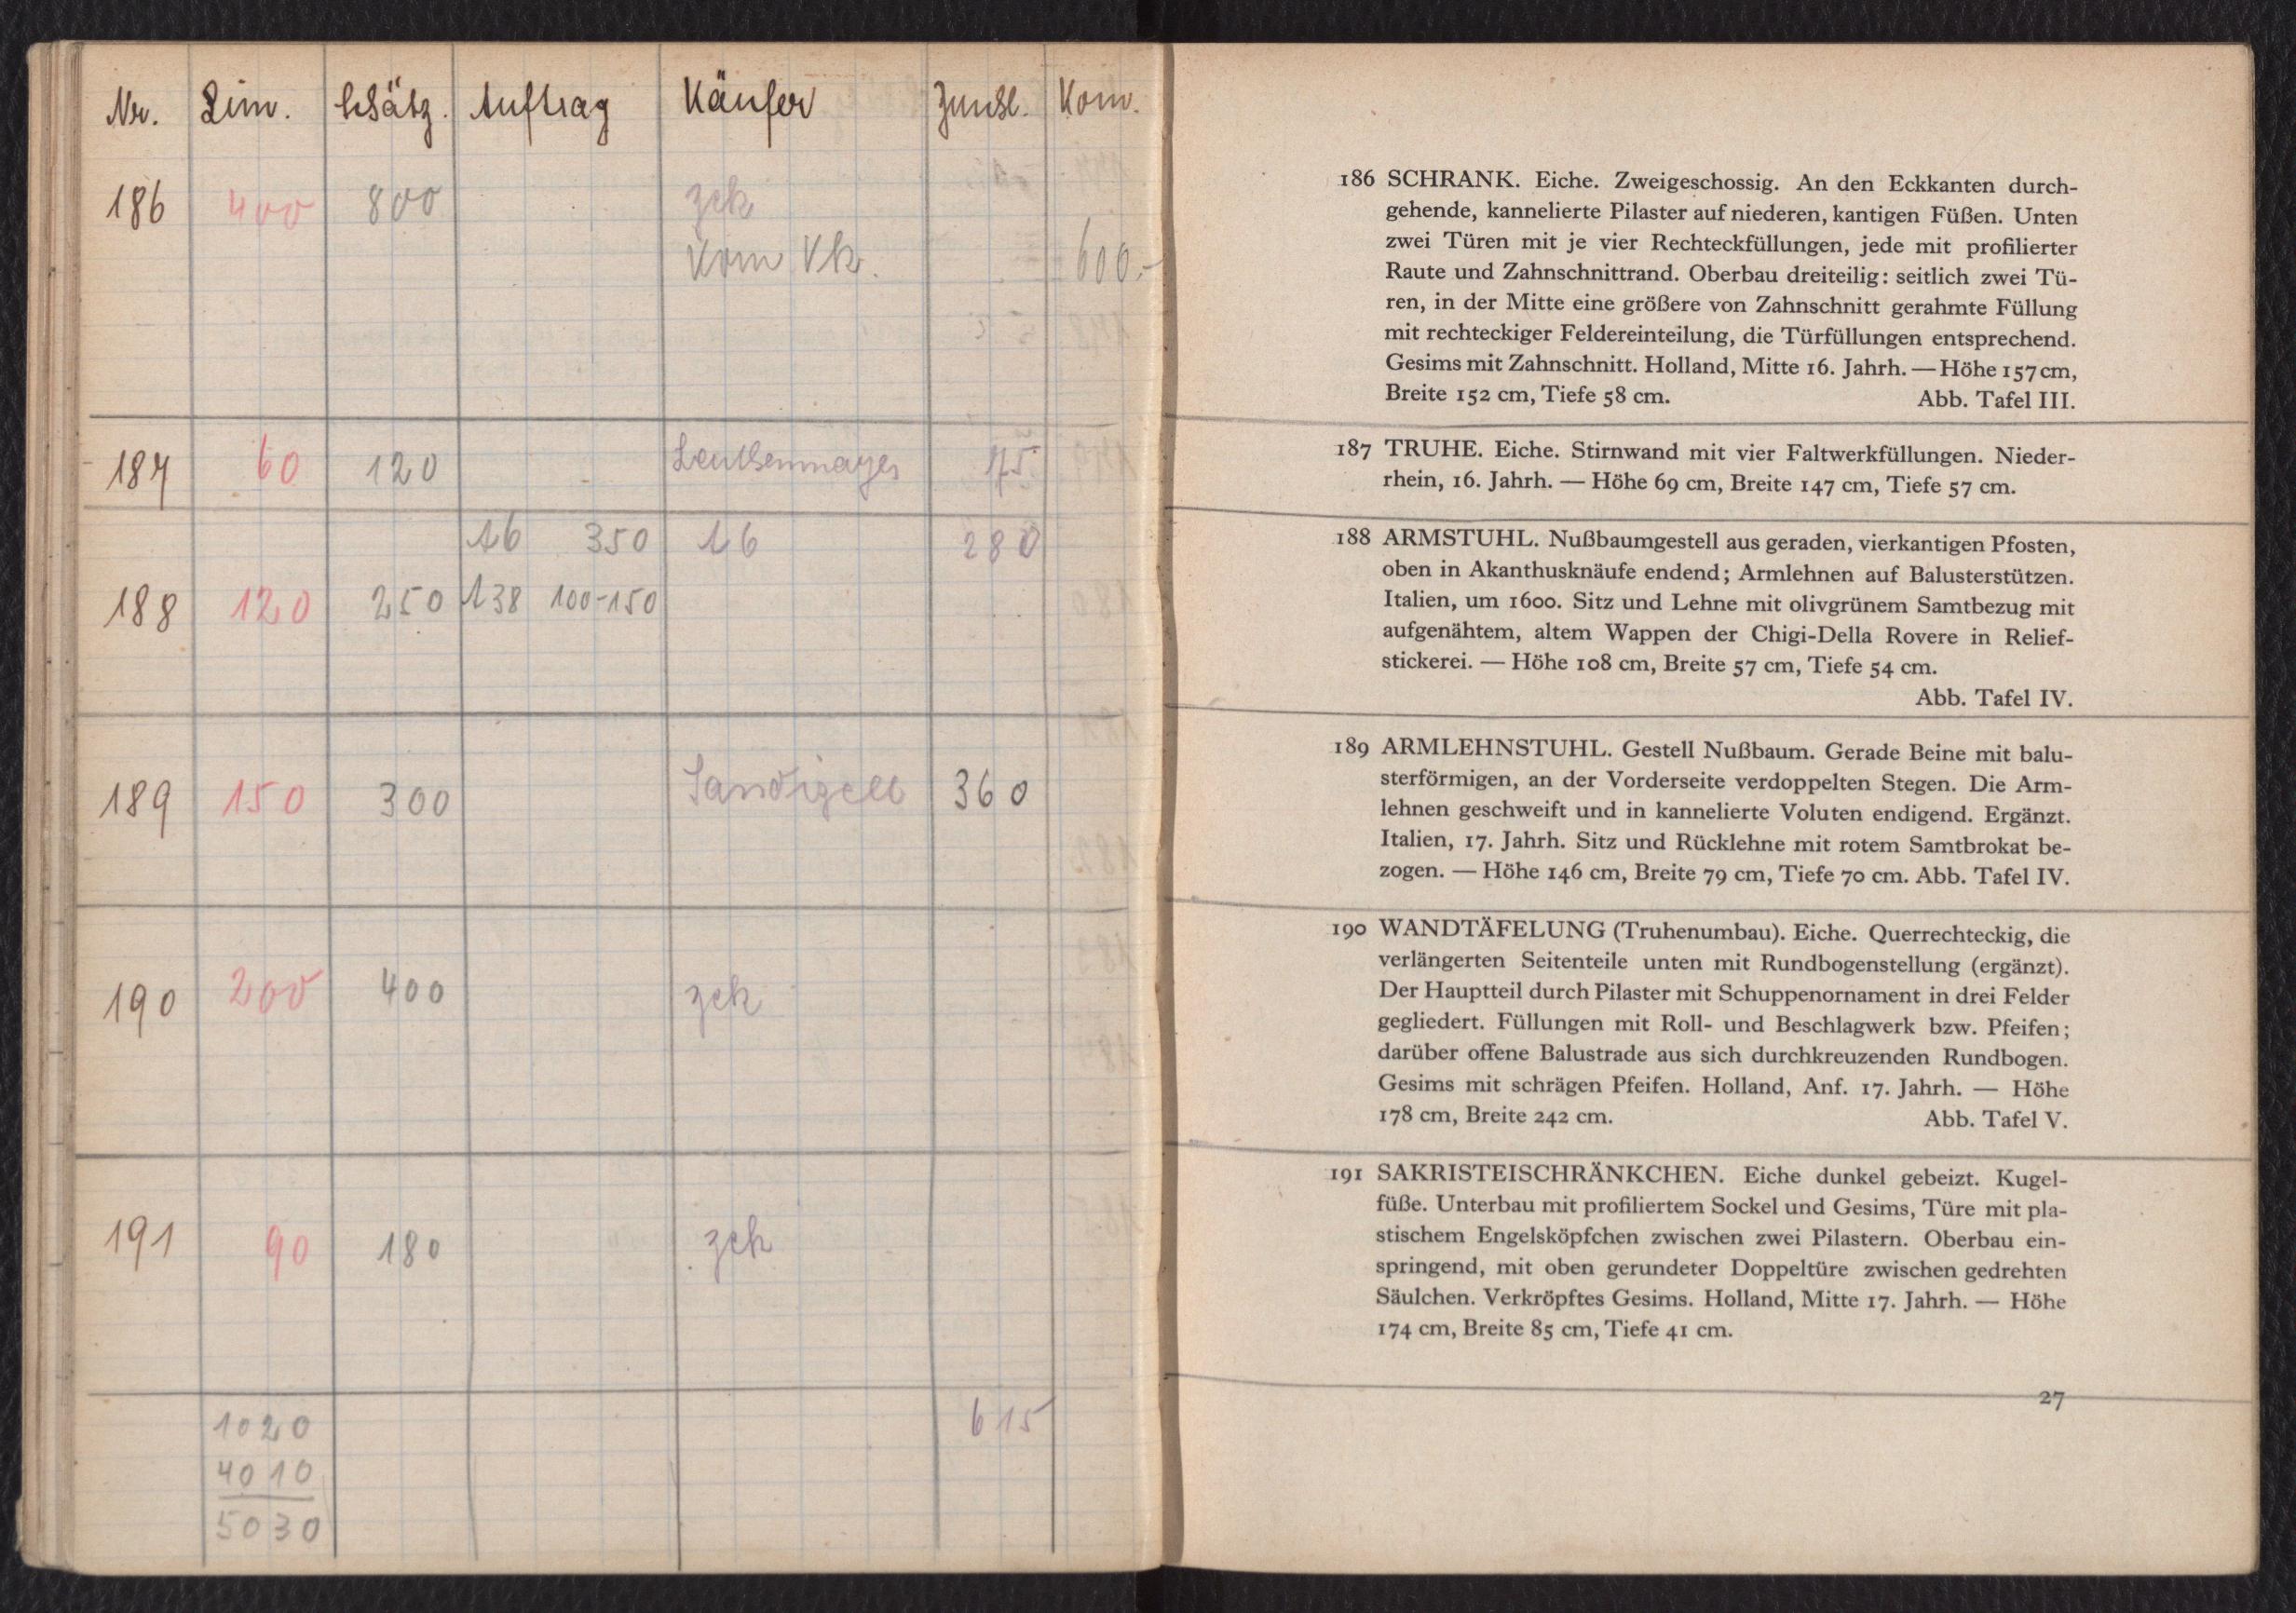 Nr. Lim. Schätz. Auftrag Käufer Zuschl. Kom.
186 400 800 zck
Kom Vk. 600.-
187 60 120
A6 350 A6 280
188 120 250 A38 100-150
189 150 300 Sandizell 360
190 200 400 zck
191 90 180 zck
1020 615
4010
5030
186 SCHRANK. Eiche. Zweigeschossig. An den Eckkanten durch-
gehende, kannelierte Pilaster auf niederen, kantigen Füßen. Unten
zwei Türen mit je vier Rechteckfüllungen, jede mit profilierter
Raute und Zahnschnittrand. Oberbau dreiteilig: seitlich zwei Tü-
ren, in der Mitte eine größere von Zahnschnitt gerahmte Füllung
mit rechteckiger Feldereinteilung, die Türfüllungen entsprechend.
Gesims mit Zahnschnitt. Holland, Mitte 16. Jahrh. — Höhe 157 cm,
Breite 152 cm, Tiefe 58 cm. Abb. Tafel III.
187 TRUHE. Eiche. Stirnwand mit vier Faltwerkfüllungen. Nieder-
rhein, 16. Jahrh. — Höhe 69 cm, Breite 147 cm, Tiefe 57 cm.
188 ARMSTUHL. Nußbaumgestell aus geraden, vierkantigen Pfosten,
oben in Akanthusknäufe endend; Armlehnen auf Balusterstützen.
Italien, um 1600. Sitz und Lehne mit olivgrünem Samtbezug mit
aufgenähtem, altem Wappen der Chigi-Della Rovere in Relief-
stickerei. — Höhe 108 cm, Breite 57 cm, Tiefe 54 cm.
Abb. Tafel IV.
189 ARMLEHNSTUHL. Gestell Nußbaum. Gerade Beine mit balu-
sterförmigen, an der Vorderseite verdoppelten Stegen. Die Arm-
lehnen geschweift und in kannelierte Voluten endigend. Ergänzt.
Italien, 17. Jahrh. Sitz und Rücklehne mit rotem Samtbrokat be-
zogen. — Höhe 146 cm, Breite 79 cm, Tiefe 70 cm. Abb. Tafel IV.
190 WANDTÄFELUNG (Truhenumbau). Eiche. Querrechteckig, die
verlängerten Seitenteile unten mit Rundbogenstellung (ergänzt).
Der Hauptteil durch Pilaster mit Schuppenornament in drei Felder
gegliedert. Füllungen mit Roll- und Beschlagwerk bzw. Pfeifen;
darüber offene Balustrade aus sich durchkreuzenden Rundbogen.
Gesims mit schrägen Pfeifen. Holland, Anf. 17. Jahrh. — Höhe
178 cm, Breite 242 cm. Abb. Tafel V.
191 SAKRISTEISCHRÄNKCHEN. Eiche dunkel gebeizt. Kugel-
füße. Unterbau mit profiliertem Sockel und Gesims, Türe mit pla-
stischem Engelsköpfchen zwischen zwei Pilastern. Oberbau ein-
springend, mit oben gerundeter Doppeltüre zwischen gedrehten
Säulchen. Verkröpftes Gesims. Holland, Mitte 17. Jahrh. — Höhe
174 cm, Breite 85 cm, Tiefe 41 cm.
27